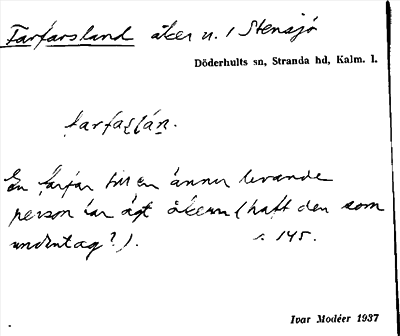 Farfarsland åker n. 1 Stensjö
Döderhults sn, Stranda hd, Kalm. l.
farfaslán.
En farfar till en ännu levande
person har ägt åkern (haft den som
undantag?). s. 145.
Ivar Modéer 1937